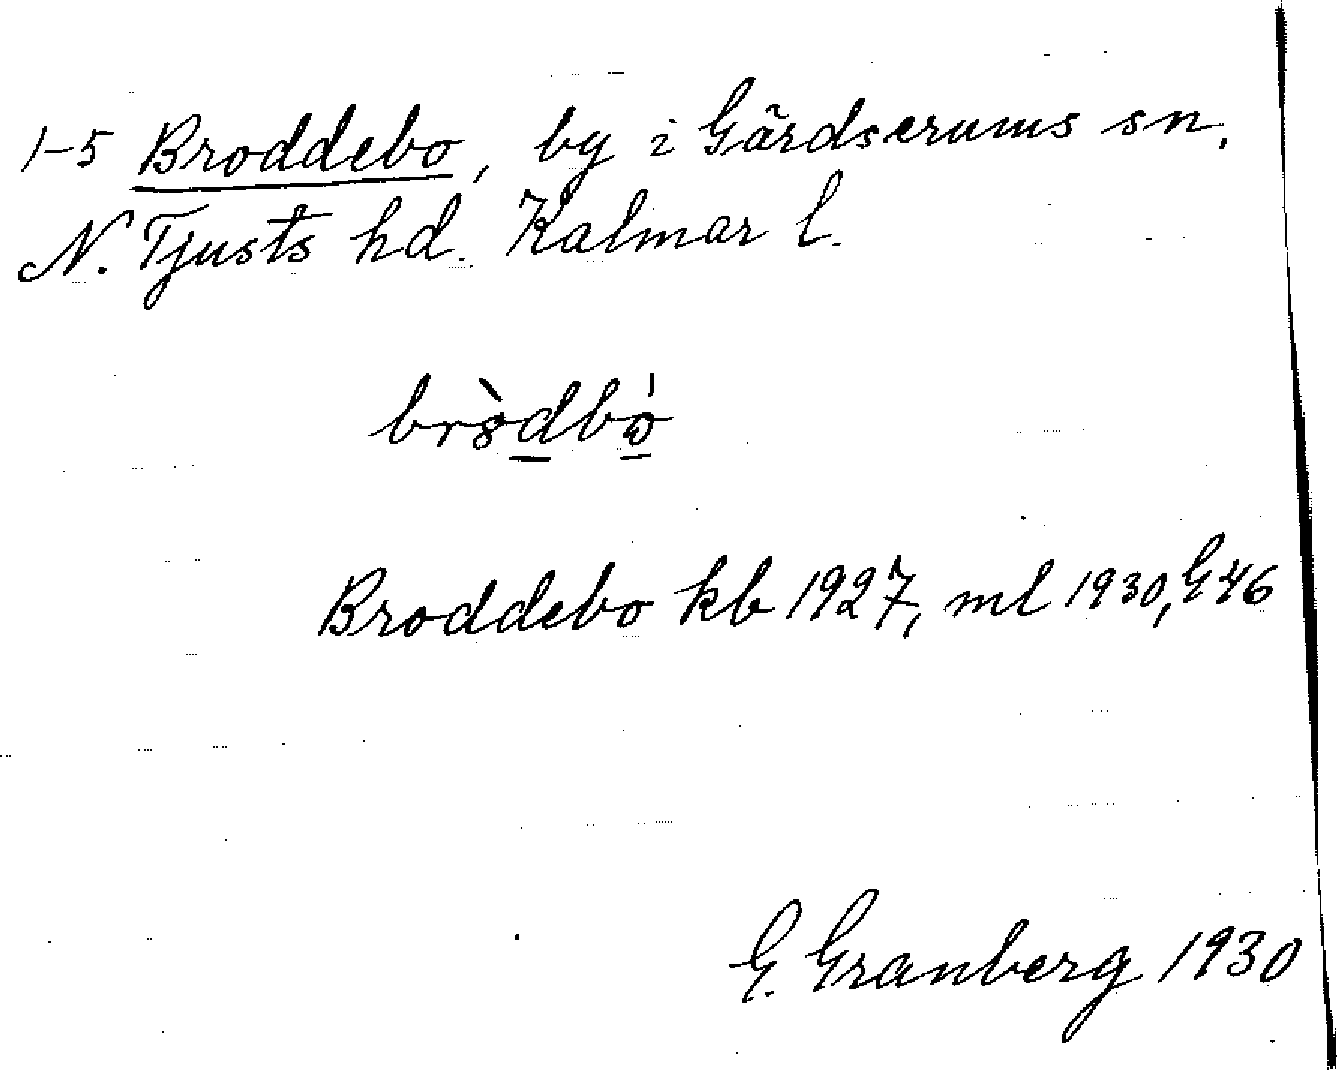 1-5 Broddebo, by i Gärdserums sn.
N. Tjusts hd. Kalmar l.
bròdbó
Broddebo kb 1927, ml 1930, G46
G. Granberg 1930